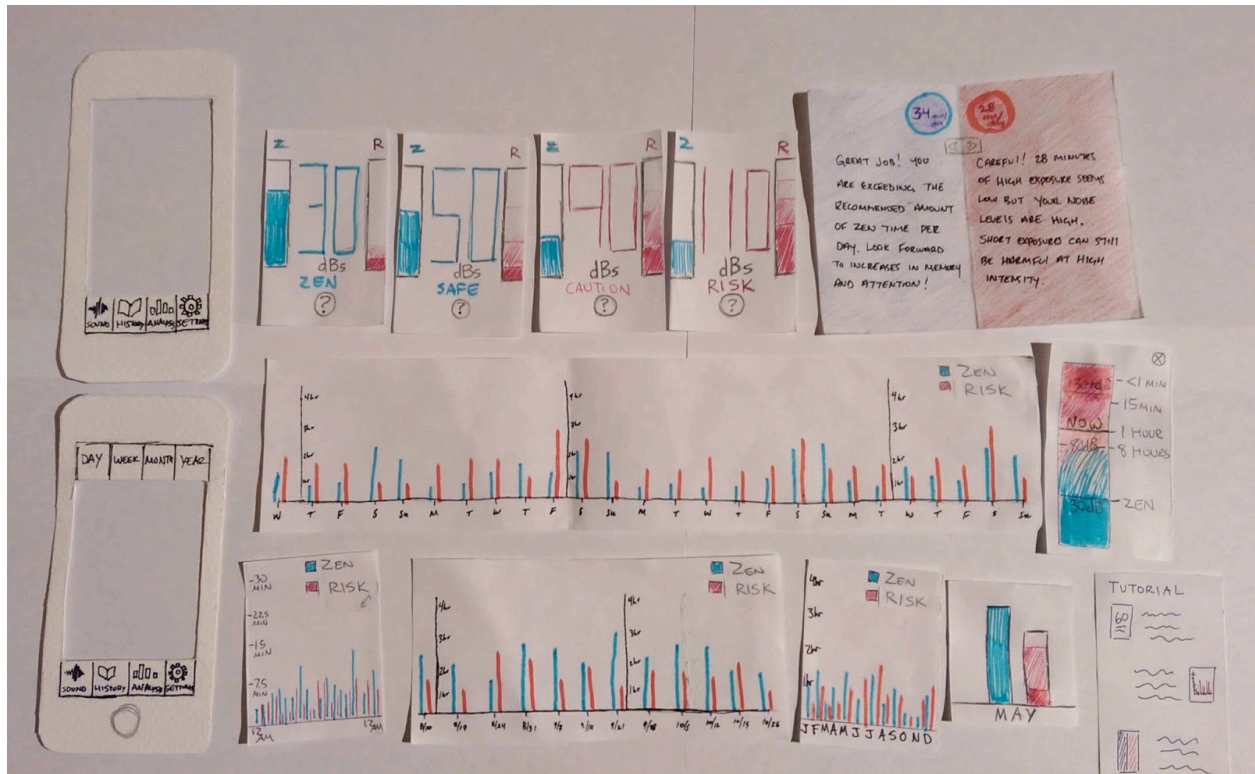 SOUND HISTORY ANALYSIS SETTINGS
Z R
30
dBs
ZEN
?
Z R
50
dBs
SAFE
?
Z R
90
dBs
CAUTION
?
Z R
110
dBs
RISK
?
34 min/
day
GREAT JOB! YOU
ARE EXCEEDING THE
RECOMMENDED AMOUNT
OF ZEN TIME PER
DAY. LOOK FORWARD
TO INCREASES IN MEMORY
AND ATTENTION!
28
min/
day
CAREFUL! 28 MINUTES
OF HIGH EXPOSURE SEEMS
LOW BUT YOUR NOISE
LEVELS ARE HIGH.
SHORT EXPOSURES CAN STILL
BE HARMFUL AT HIGH
INTENSITY.
ZEN
RISK
4hr
3hr
2hr
1hr
4hr
3hr
2hr
1hr
4hr
3hr
2hr
1hr
W T F S Su M T W T F S Su M T W T F S Su M T W T F S Su
<1 MIN
15 MIN
NOW
1 HOUR
80dB
8 HOURS
30dB
ZEN
DAY WEEK MONTH YEAR
SOUND HISTORY ANALYSIS SETTINGS
ZEN
RISK
-30
MIN
-22.5
MIN
-15
MIN
-7.5
MIN
12
AM
12
AM
ZEN
RISK
4hr
3hr
2hr
1hr
4hr
3hr
2hr
1hr
8/24 8/31 9/7 9/21 10/5 10/12 10/19 10/26
ZEN
RISK
4hr
3hr
2hr
1hr
J F M A M J J A S O N D
MAY
TUTORIAL
60